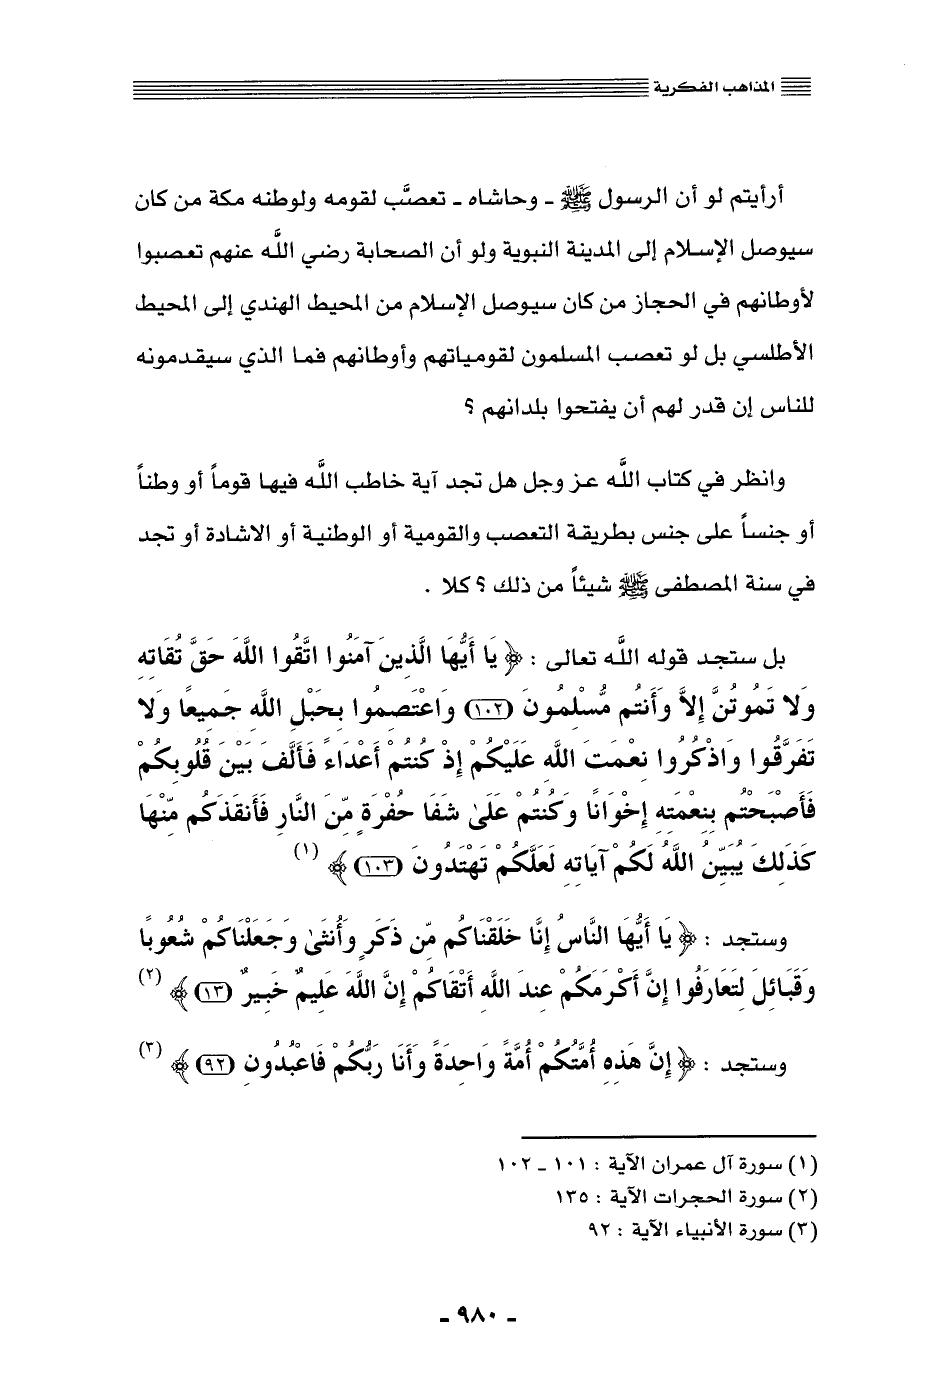 المذاهب الفكرية
أرأيتم لو أن الرسول ﷺ ـ وحاشاه ـ تعصَّب لقومه ولوطنه مكة من كان
سيوصل الإسلام إلى المدينة النبوية ولو أن الصحابة رضي اللَّه عنهم تعصبوا
لأوطانهم في الحجاز من كان سيوصل الإسلام من المحيط الهندي إلى المحيط
الأطلسي بل لو تعصب المسلمون لقومياتهم وأوطانهم فما الذي سيقدمونه
للناس إن قدر لهم أن يفتحوا بلدانهم ؟
وانظر في كتاب اللَّه عز وجل هل تجد آية خاطب اللَّه فيها قوماً أو وطناً
أو جنساً على جنس بطريقة التعصب والقومية أو الوطنية أو الاشادة أو تجد
في سنة المصطفى ﷺ شيئاً من ذلك ؟ كلا .
بل ستجد قوله اللَّه تعالى : ﴿ يَا أَيُّهَا الَّذِينَ آمَنُوا اتَّقُوا اللَّهَ حَقَّ تُقَاتِهِ
وَلا تَمُوتُنَّ إِلاَّ وَأَنتُم مُّسْلِمُونَ (١٠٢) وَاعْتَصِمُوا بِحَبْلِ اللَّهِ جَمِيعًا وَلا
تَفَرَّقُوا وَاذْكُرُوا نِعْمَتَ اللَّهِ عَلَيْكُمْ إِذْ كُنتُمْ أَعْدَاءً فَأَلَّفَ بَيْنَ قُلُوبِكُمْ
فَأَصْبَحْتُم بِنِعْمَتِهِ إِخْوَانًا وَكُنتُمْ عَلَىٰ شَفَا حُفْرَةٍ مِّنَ النَّارِ فَأَنقَذَكُم مِّنْهَا
كَذَلِكَ يُبَيِّنُ اللَّهُ لَكُمْ آيَاتِهِ لَعَلَّكُمْ تَهْتَدُونَ (١٠٣) ﴾ (١)
وستجد : ﴿ يَا أَيُّهَا النَّاسُ إِنَّا خَلَقْنَاكُم مِّن ذَكَرٍ وَأُنثَىٰ وَجَعَلْنَاكُمْ شُعُوبًا
وَقَبَائِلَ لِتَعَارَفُوا إِنَّ أَكْرَمَكُمْ عِندَ اللَّهِ أَتْقَاكُمْ إِنَّ اللَّهَ عَلِيمٌ خَبِيرٌ (١٣) ﴾ (٢)
وستجد : ﴿ إِنَّ هَذِهِ أُمَّتُكُمْ أُمَّةً وَاحِدَةً وَأَنَا رَبُّكُمْ فَاعْبُدُونِ (٩٢) ﴾ (٣)
(١) سورة آل عمران الآية : ١٠١ ـ ١٠٢
(٢) سورة الحجرات الآية : ١٣٥
(٣) سورة الأنبياء الآية : ٩٢
ـ ٩٨٠ ـ